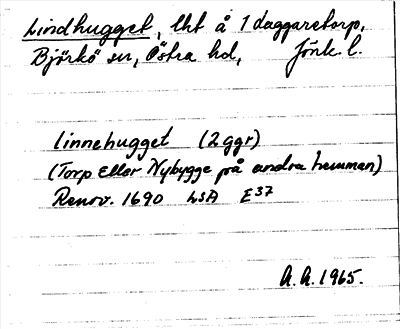 Lindhugget, lht å 1 daggaretorp,
Björkö sn, Östra hd, Jönk. l.
linnehugget (2 ggr)
(Torp Eller Nybygge på andra hemman)
Renov. 1690 LSA E37
A. A. 1965.